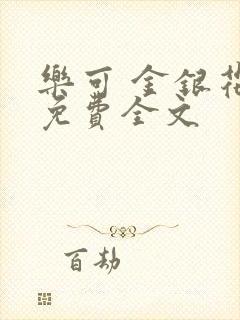 樂可 金銀花
免費全文
百劫